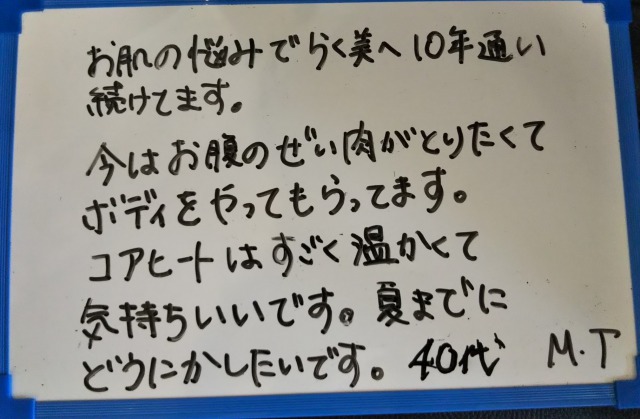 お肌の悩みでらく美へ10年通い
続けてます。
今はお腹のぜい肉がとりたくて
ボディをやってもらってます。
コアヒートはすごく温かくて
気持ちいいです。夏までに
どうにかしたいです。 40代 M.T